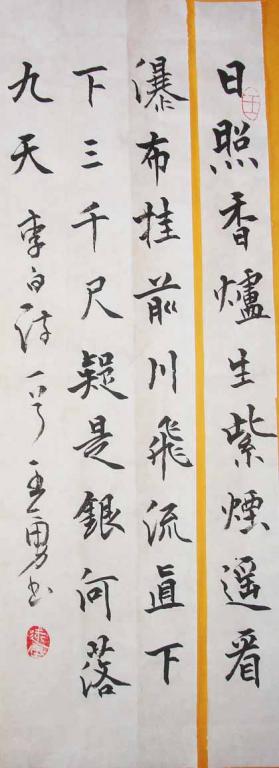 日照香爐生紫煙遥看
瀑布挂前川飛流直下
下三千尺疑是銀何落
九天 李白詩一首 王勇书